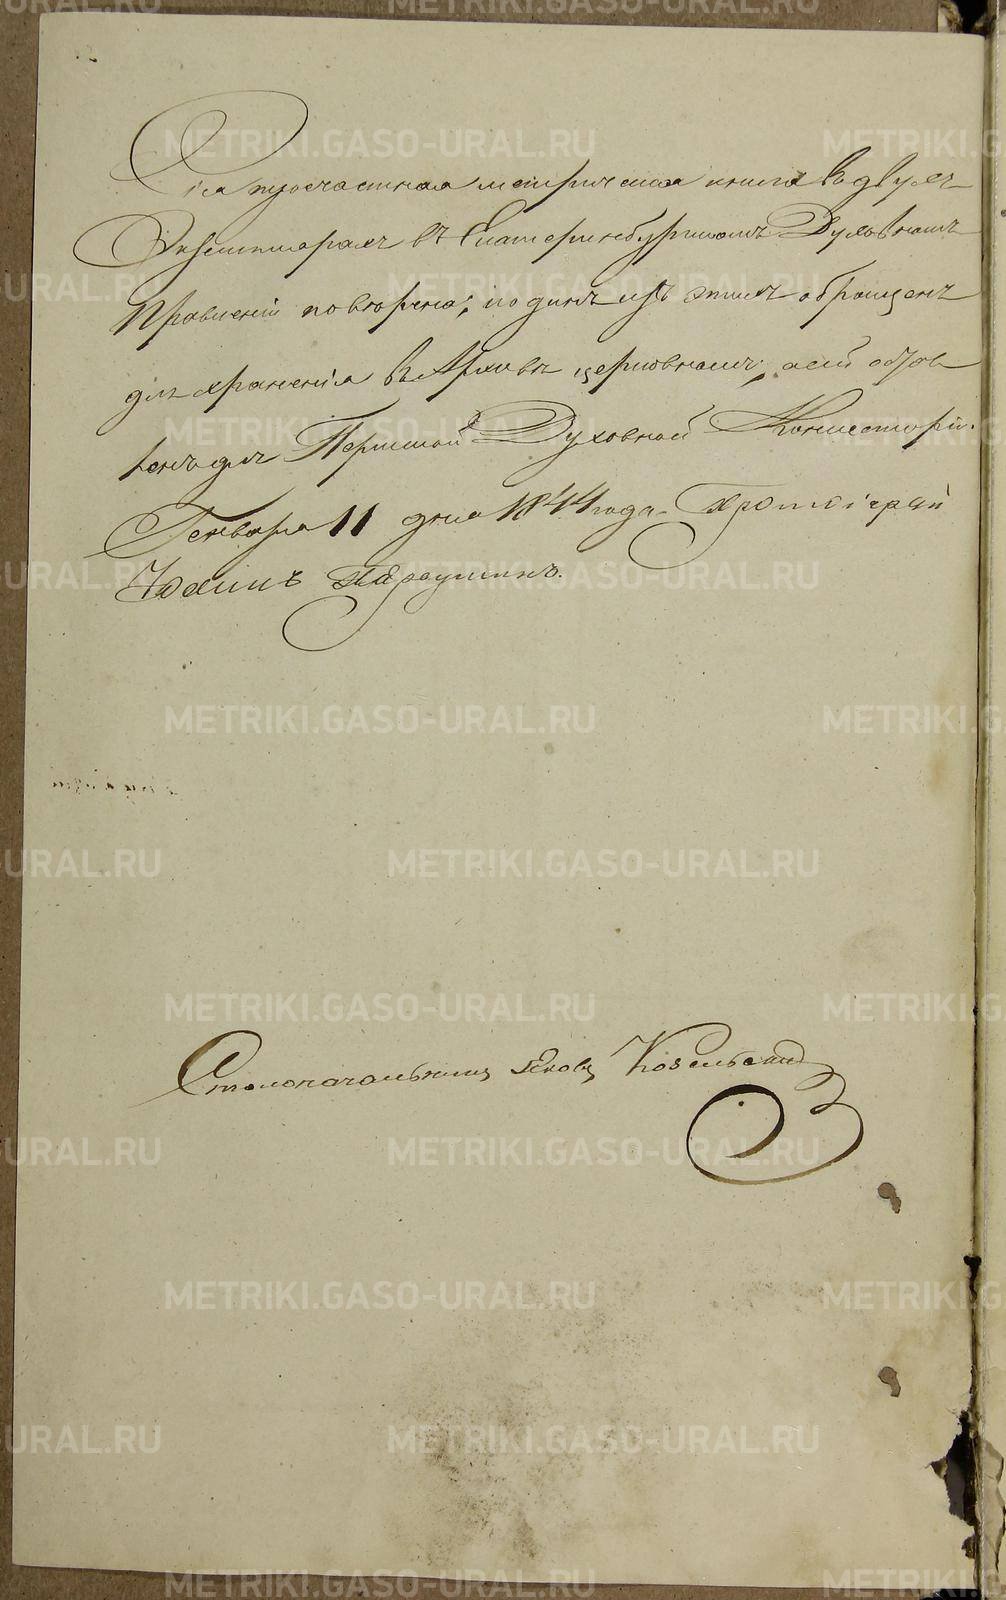 Сія троечастная метрическая книга въ двухъ
Экземплярахъ въ Екатеринбургскомъ Духовномъ
Правленіи повѣрена; и одинъ изъ этихъ обращенъ
для храненія въ Архивъ церковный, а сей остав
ленъ для Пермской Духовной Консисторіи.
Генваря 11 дня 1844 года. Протоіерей
Іоаннъ
Столоначальникъ Яковъ Козельскій
METRIKI.GASO-URAL.RU